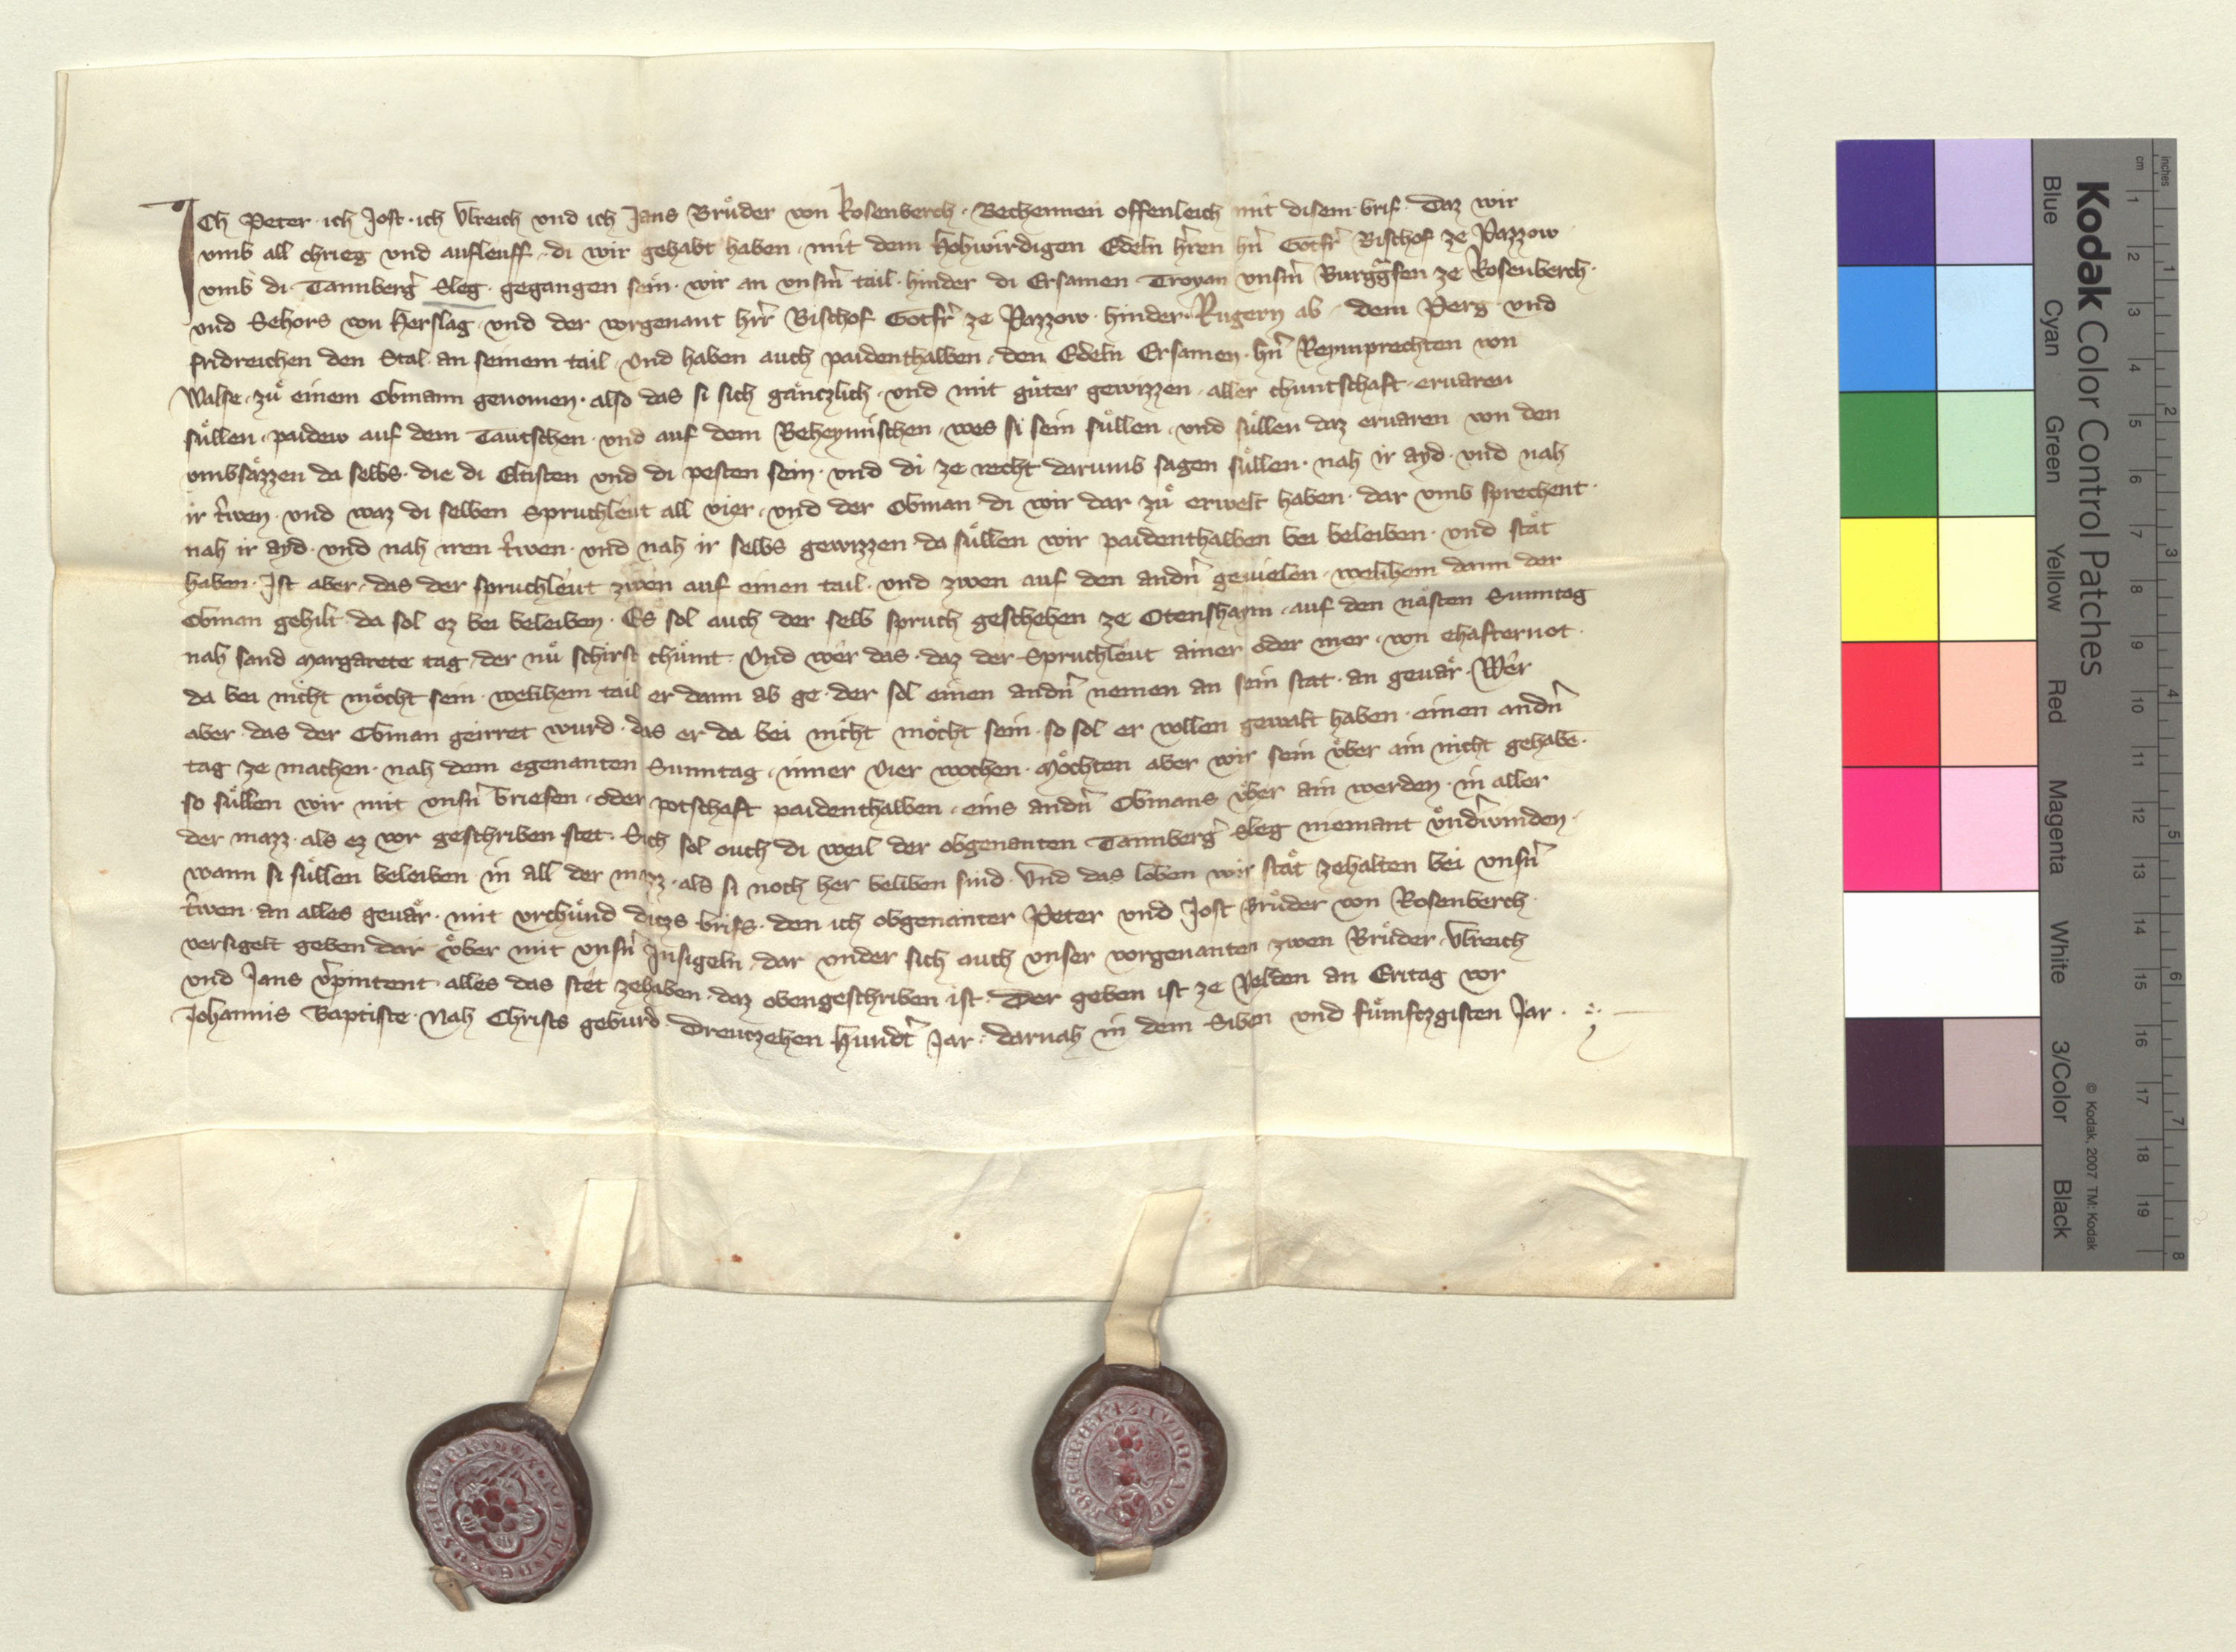 Ich Peter · ich Jost · ich Ulreich vnd ich Jans Brůder von Rosenberch · Bechennen offenleich mit disem brif · Daz wir
vmb all chrieg vnd aufleuff · di wir gehabt haben · mit dem Hohwirdigen Edeln h̄ren hn̄ Gotfr̄ Bischof ze Pazzow
vmb di Tannberḡ Sleg · gegangen sein · wir an vnsm̄ tail · hinder di Ersamen Troyan vnsm̄ Burggͣfen ze Rosenberch ·
vnd Sehors von Herslag · vnd der vorgenant hr̄r Bischof Gotfr̄ ze Pazzow · hinder · Rugern ab dem Perg · vnd
fridreichen den Stal · an seinem tail · Vnd haben auch paidenthalben · den Edeln Ersamen · hn̄ Reymprechten von
Walse · zů einem Obmann genomen · also das si sich gänczlich · vnd mit gůter gewizzen · aller chuntschaft · eruaren
sůllen · paidew auf dem Täutschen · vnd auf dem Beheymischen · wes si sein sůllen · vnd sůllen daz eruaren von den
vmbsäzzen da selbs · die di Eltisten vnd di pesten sein · vnd di ze recht darumb sagen sůllen · nah ir ayd · vnd nah
ir tr̄wen · vnd waz di selben Spruchleut all vier · vnd der Obman · di wir dar zů erwelt haben · dar vmb sprechent ·
nah ir ayd · vnd nah iren tr̄wen · vnd nah ir selbs gewizzen da sůllen wir paidenthalben bei beleiben · vnd stät
haben · Ist aber · das der spruchleut zwen auf einen tail · vnd zwen auf den andn̄ geuielen · welihem dann der
Obman gehilt da sol ez bei beleiben · Es sol auch der selb spruch geschehen ze Otenshaym · auf den nästen Sunntag
nah sand Margarete tag · der nů schirst chümt · Vnd wer das · daz der Spruchleut ainer oder mer · von ehafternot ·
da bei nicht möcht sein · welihem tail er dann ab ge · der sol einen andn̄ nemen an sein stat · an geuär · Wer
aber das der Obman geirret wurd · das er da bei nicht möcht sein · so sol er vollen gewalt haben · einen andn̄
tag ze machen · nah dem egenanten Sunntag · inner vier wochen · Möchten aber wir sein vͤber ain nicht gehabē ·
so sůllen wir mit vnsn̄ briefen · oder potschaft paidenthalben · eins andn̄ Obmans vͤber ain werden · in aller
der mazz · als ez vor geschriben stet · Sich sol ouch di weil der obgenanten Tannberḡ Sleg niemant vͤnderwinden ·
wann si sůllen beleiben in all der mazz · als si noch her beliben sind · Vnd das loben wir stät zehalten bei vnsn̄
tr̄wen · an alles geuär · mit vrchünd diczs brifs · den ich obgenanter Peter vnd Jost Brůder von Rosenberch ·
versigelt geben dar vͤber mit vnsn̄ Insigeln · dar vnder sich auch vnser vorgenanten zwen Brůder Ulreich
vnd Jans v̄pintent alles das stet zehaben · daz obengeschriben ist · Der geben ist ze Velden an Eritag vor
Johannis Baptiste · Nah Christs geburd Dreutzehen Hundt̄ Jar · darnah in dem Siben vnd fümftzgisten Jar ·
Kodak Color Control Patches
Blue Cyan Green Yellow Red Magenta White 3/Color Black
© Kodak, 2007 TM: Kodak
cm 1 2 3 4 5 6 7 8 9 10 11 12 13 14 15 16 17 18 19
inches 1 2 3 4 5 6 7 8